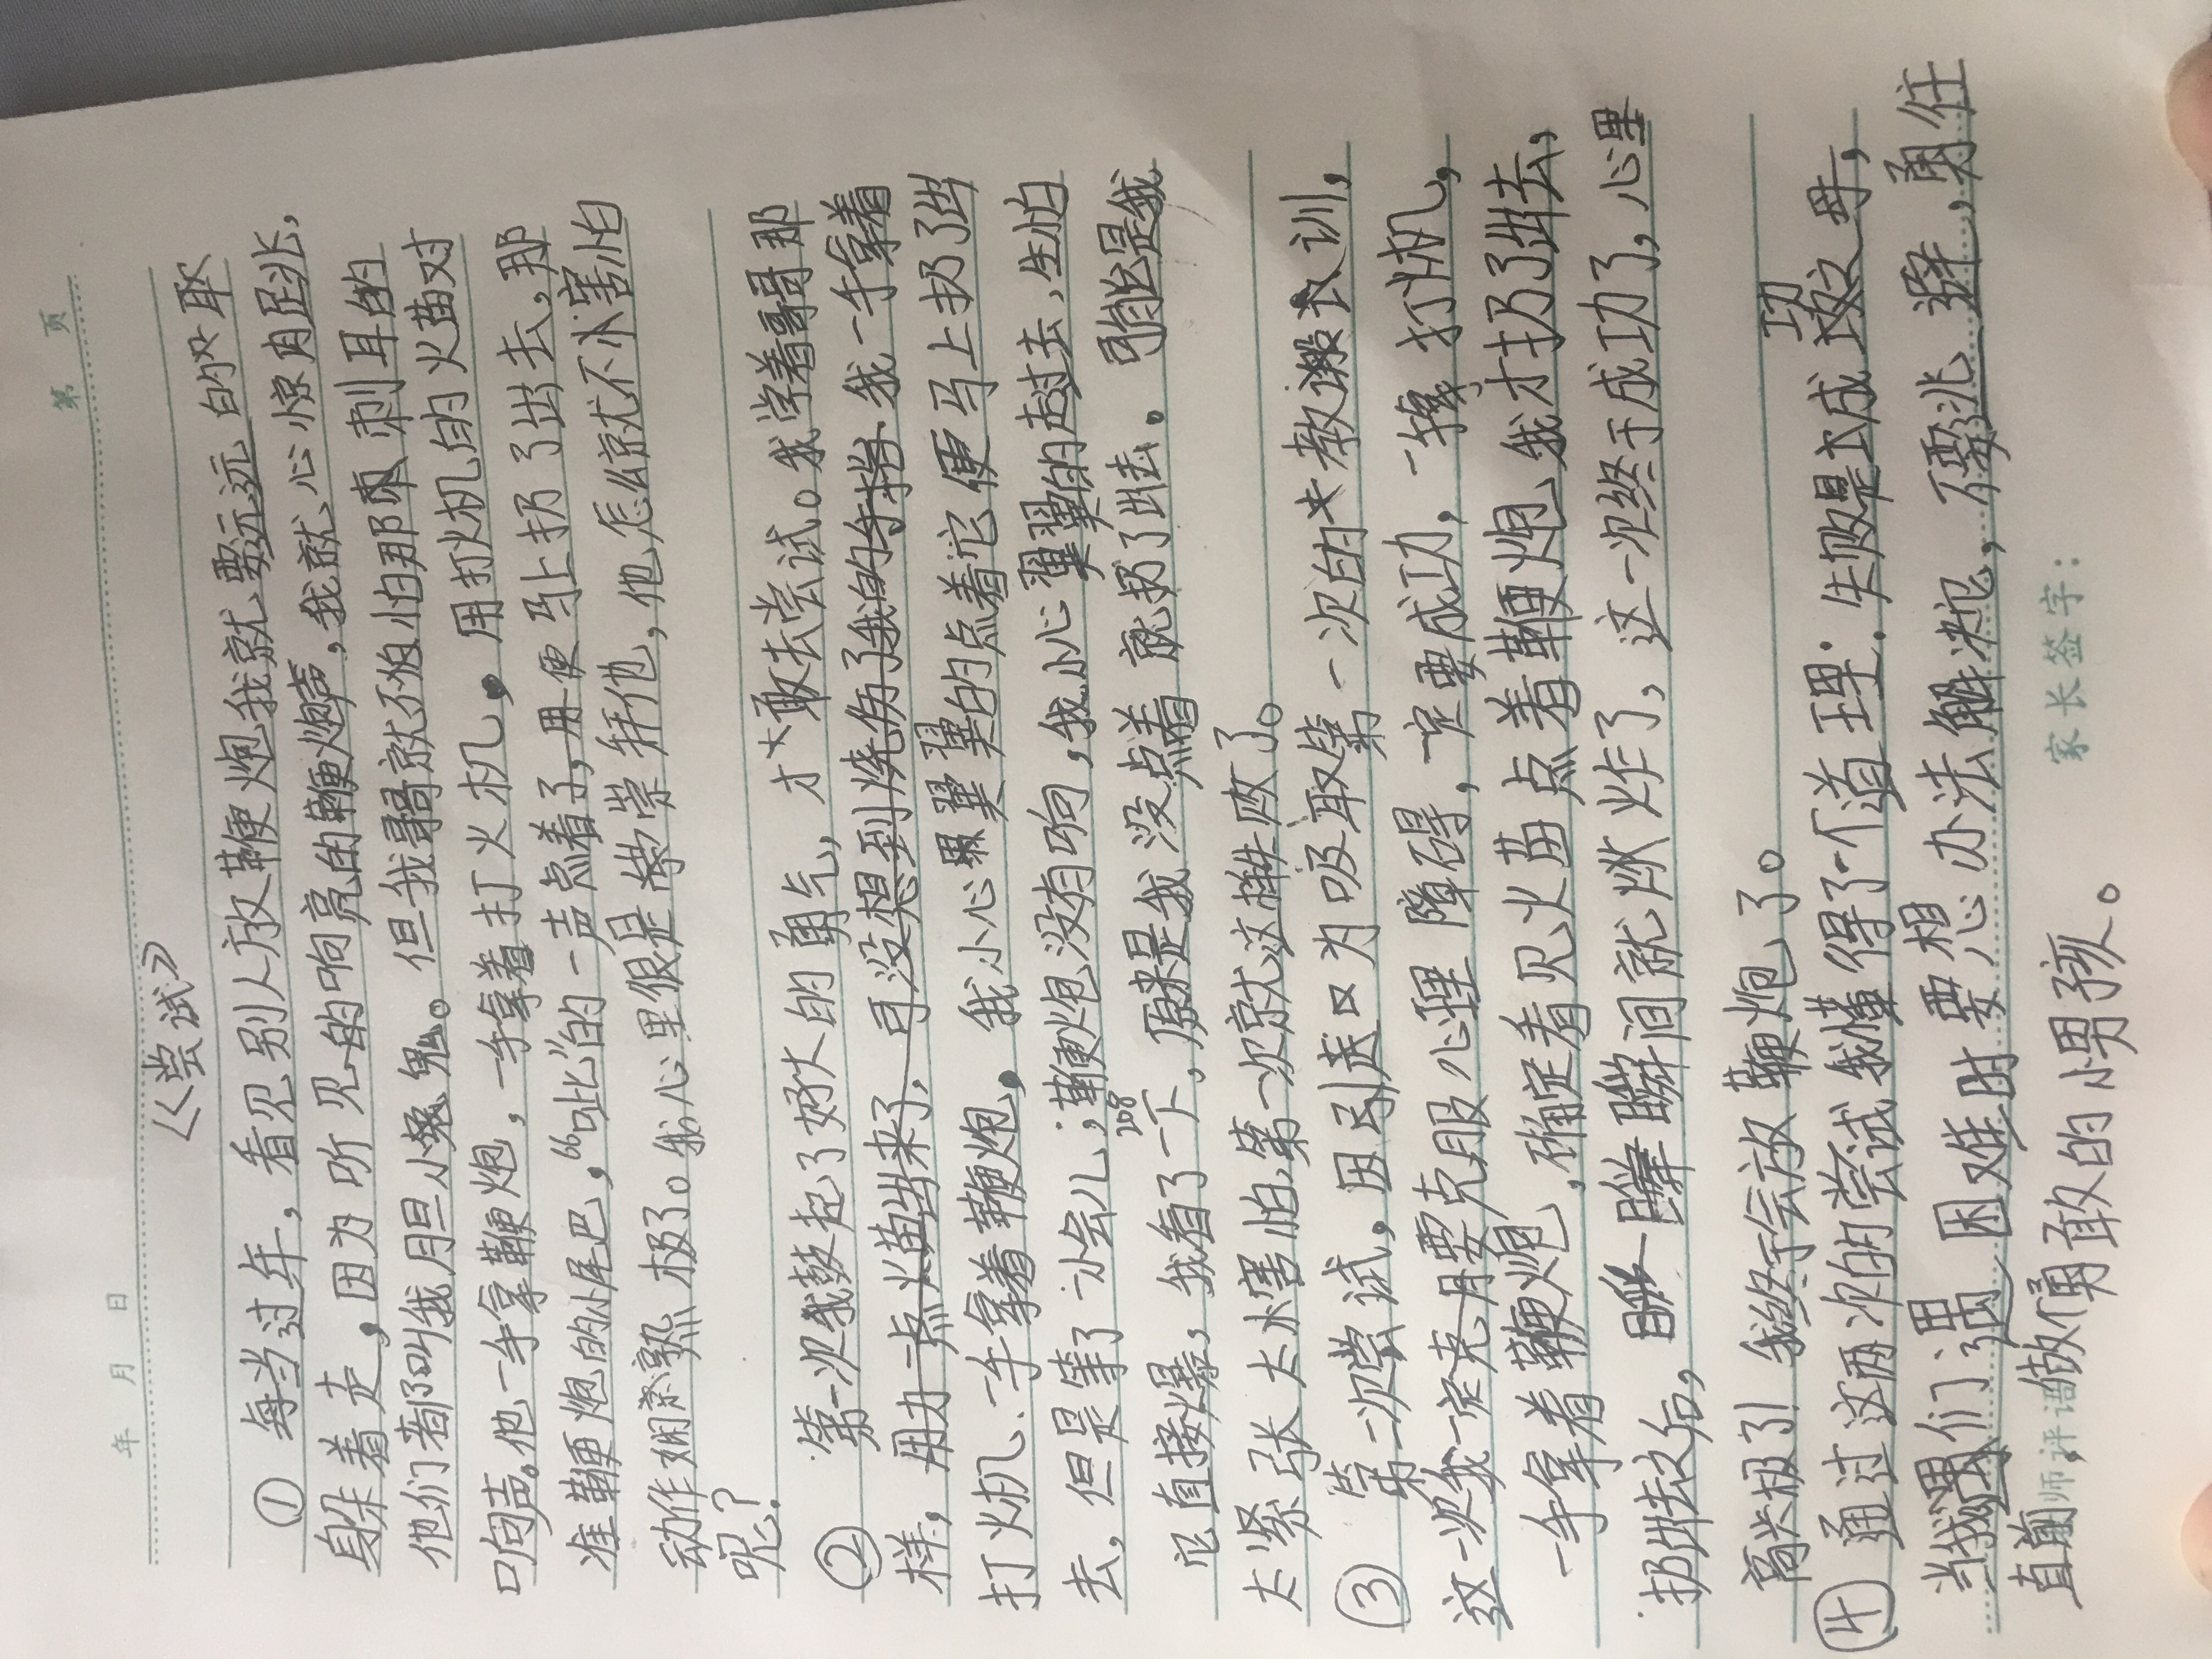 第 页
年 月 日
《尝试》
① 每当过年,看见别人放鞭炮我就要远远的
躲着走,因为听见的响亮的鞭炮声,我就心惊肉跳,
他们都叫我胆小鬼。但我哥就不怕那刺耳的
响声。他一手拿鞭炮,一手拿着打火机。用打火机的火苗对
准鞭炮的小尾巴,“呲”的一声点着了,便马上扔了出去,那
动作娴熟极了。我心里很是崇拜他,他怎么就不害怕
呢?
② 第一次我鼓起了好大的勇气,才敢去尝试。我学着哥哥那
样,我一手拿着
打火机、一手拿着鞭炮。我小心翼翼的点着它便马上扔了出
去,但是等了一会儿,鞭炮没有响,我小心翼翼的赶过去,生怕
它直接爆。我看了一下,原来是我没点着就扔了出去。肯定是我
太紧张太害怕,第一次就这样失败了。
③ 第二次尝试,因为吸取第一次的教训,
这一次我一定要克服心理障碍,一定要成功,一手拿打火机,
一手拿着鞭炮,确定看见火苗点着鞭炮,我才扔了出去,
扔出去之后,瞬间就炸了,这一次终于成功了,心里
高兴极了!我终于会放鞭炮了。
④ 通过这两次的尝试我懂得了一个道理:失败是成功之母,
当我们遇困难时要想办法解决,不要逃避,勇往
直前做个勇敢的小男孩。
师评语
家长签字: